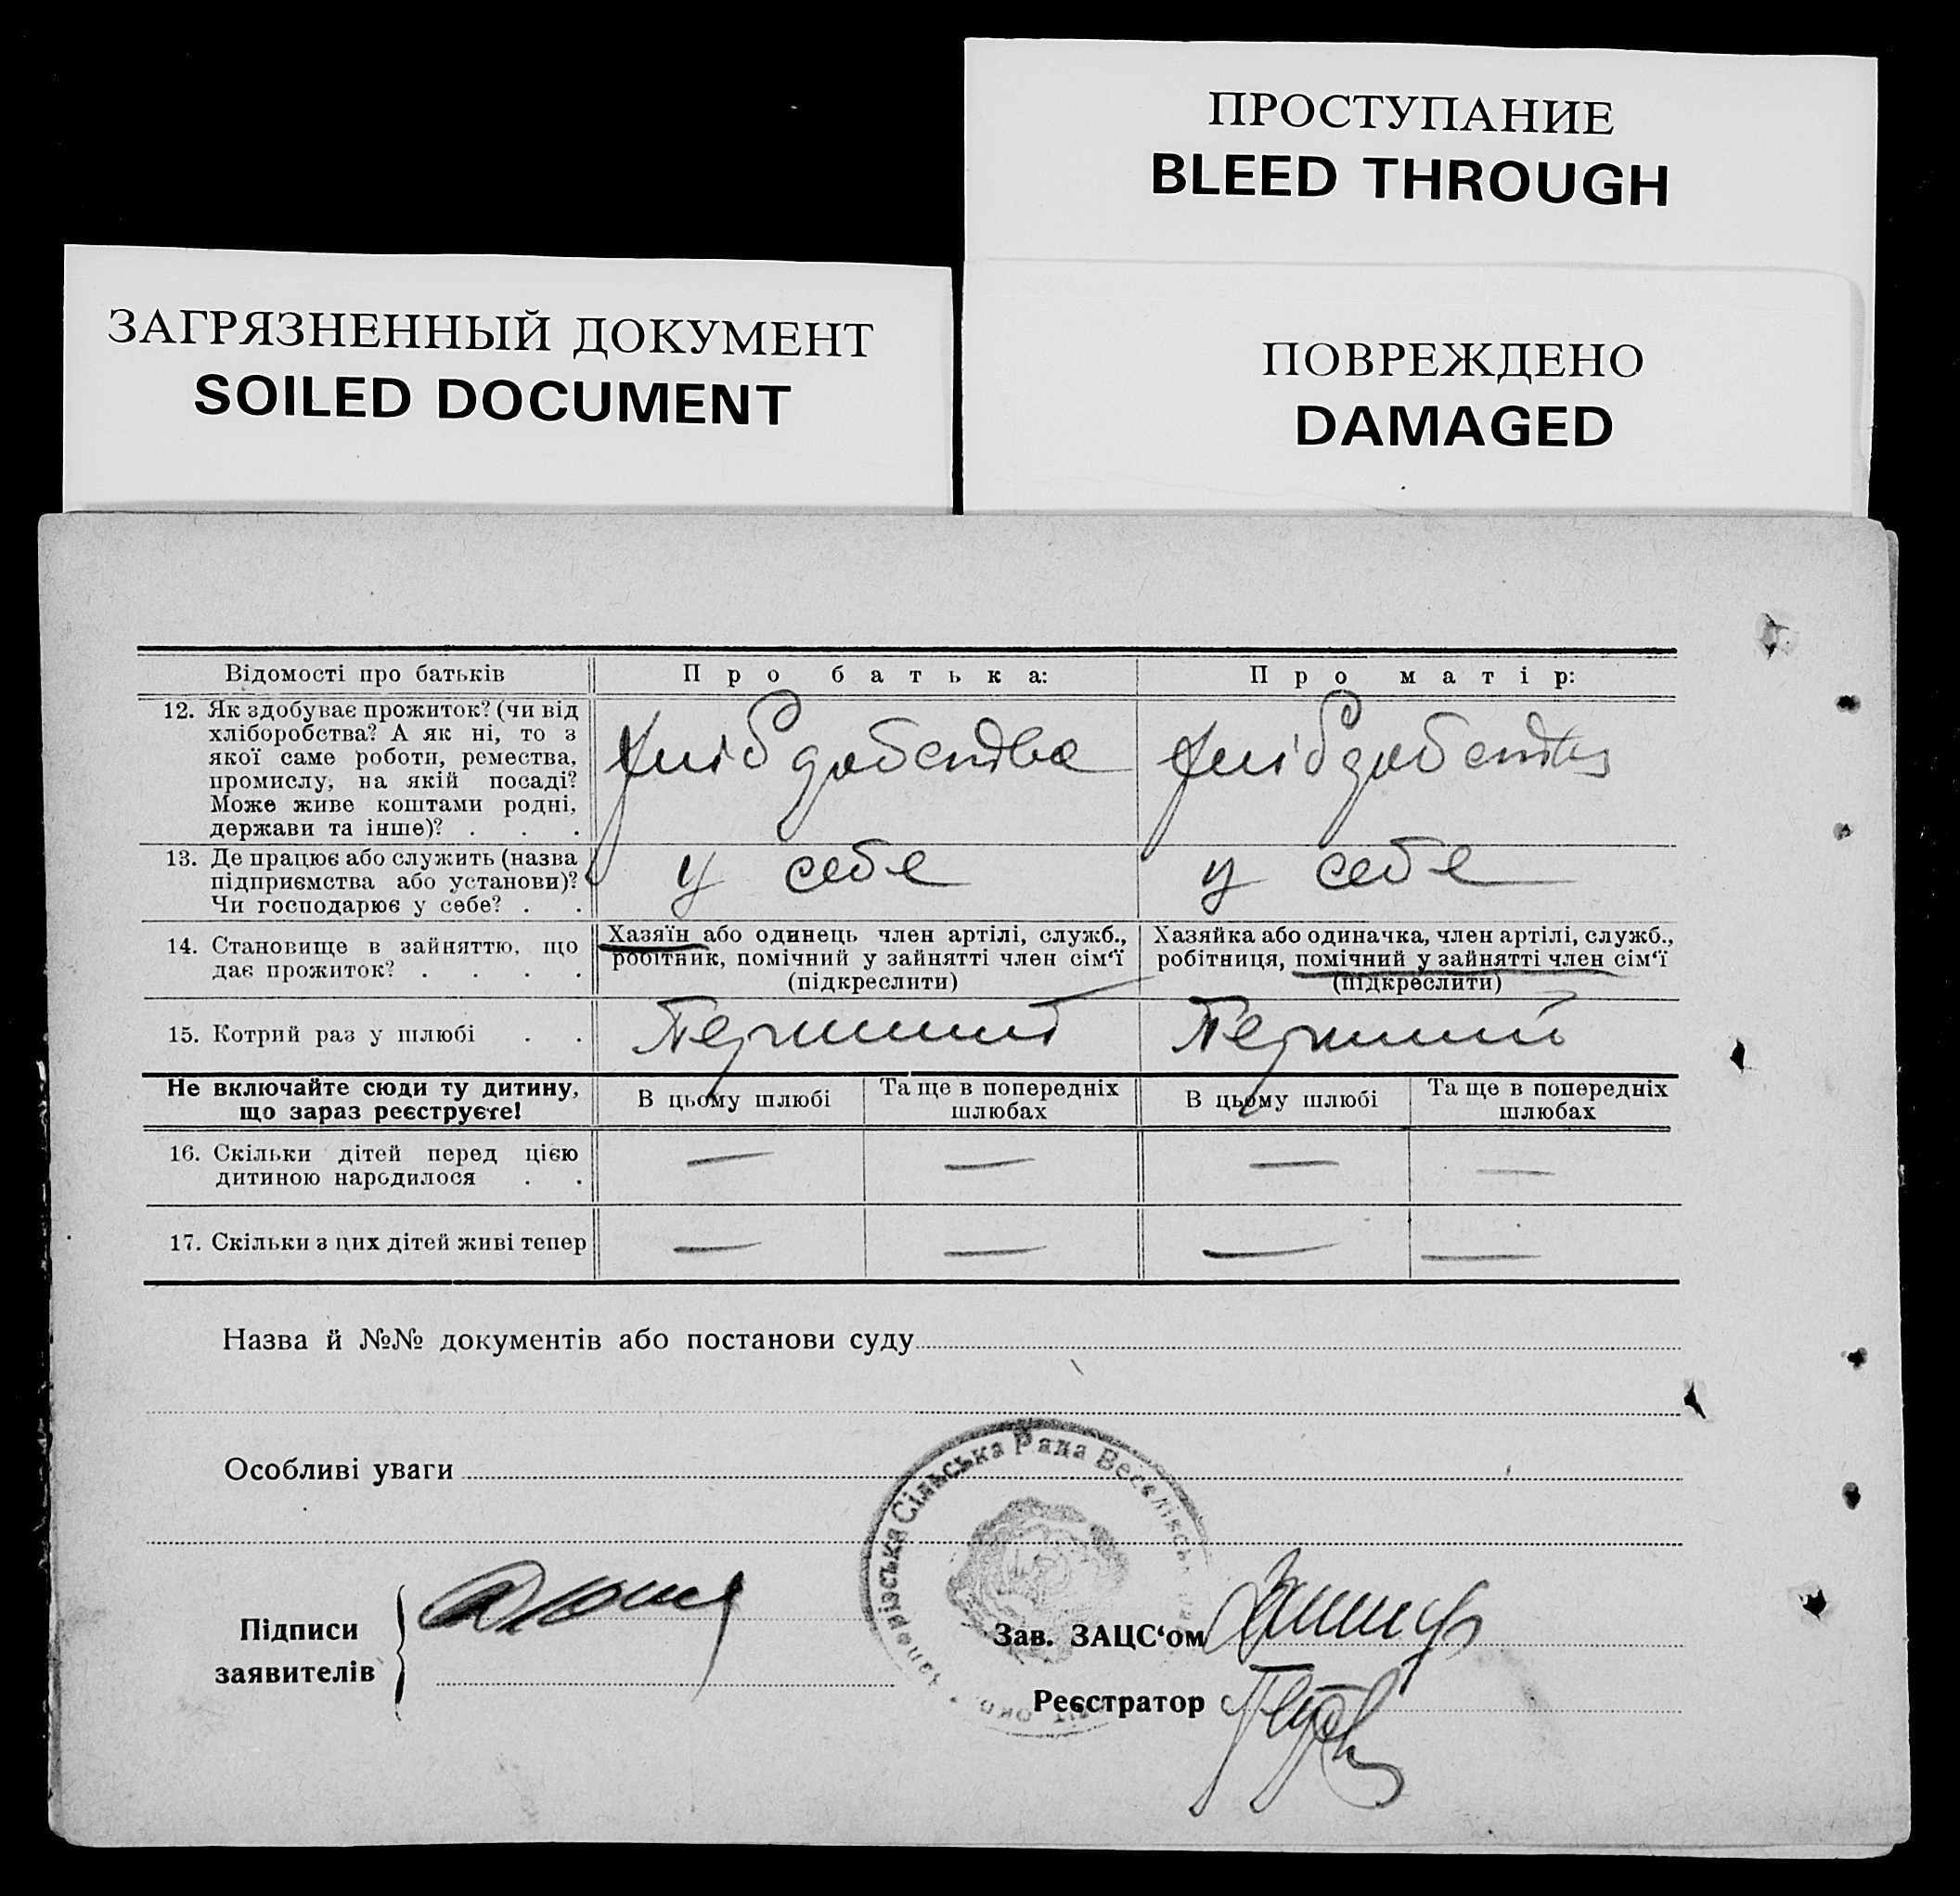 ПРОСТУПАНИЕ
BLEED THROUGH
ЗАГРЯЗНЕННЫЙ ДОКУМЕНТ
SOILED DOCUMENT
ПОВРЕЖДЕНО
DAMAGED
Відомості про батьків Про батька: Про матір:
12. Як здобуває прожиток? (чи від
хліборобства? А як ні, то з
якої саме роботи, ремества,
промислу, на якій посаді?
Може живе коштами родні,
держави та інше)? . . .
13. Де працює або служить (назва
підприємства або установи)?
Чи господарює у себе? . .
у себе у себе
14. Становище в зайняттю, що
дає прожиток? . . . .
Хазяїн або одинець член артілі, служб.,
робітник, помічний у зайнятті член сім‘ї
(підкреслити)
Хазяйка або одиначка, член артілі, служб.,
робітниця, помічний у зайнятті член сім‘ї
(підкреслити)
15. Котрий раз у шлюбі . . Перший Перший
Не включайте сюди ту дитину,
що зараз реєструєте!
В цьому шлюбі
Та ще в попередніх
шлюбах
В цьому шлюбі
Та ще в попередніх
шлюбах
16. Скільки дітей перед цією
дитиною народилося . .
— — — —
17. Скільки з цих дітей живі тепер — — — —
Назва й №№ документів або постанови суду
Особливі уваги
Сільська Рада
Підписи
заявителів
Зав. ЗАЦС‘ом
Реєстратор